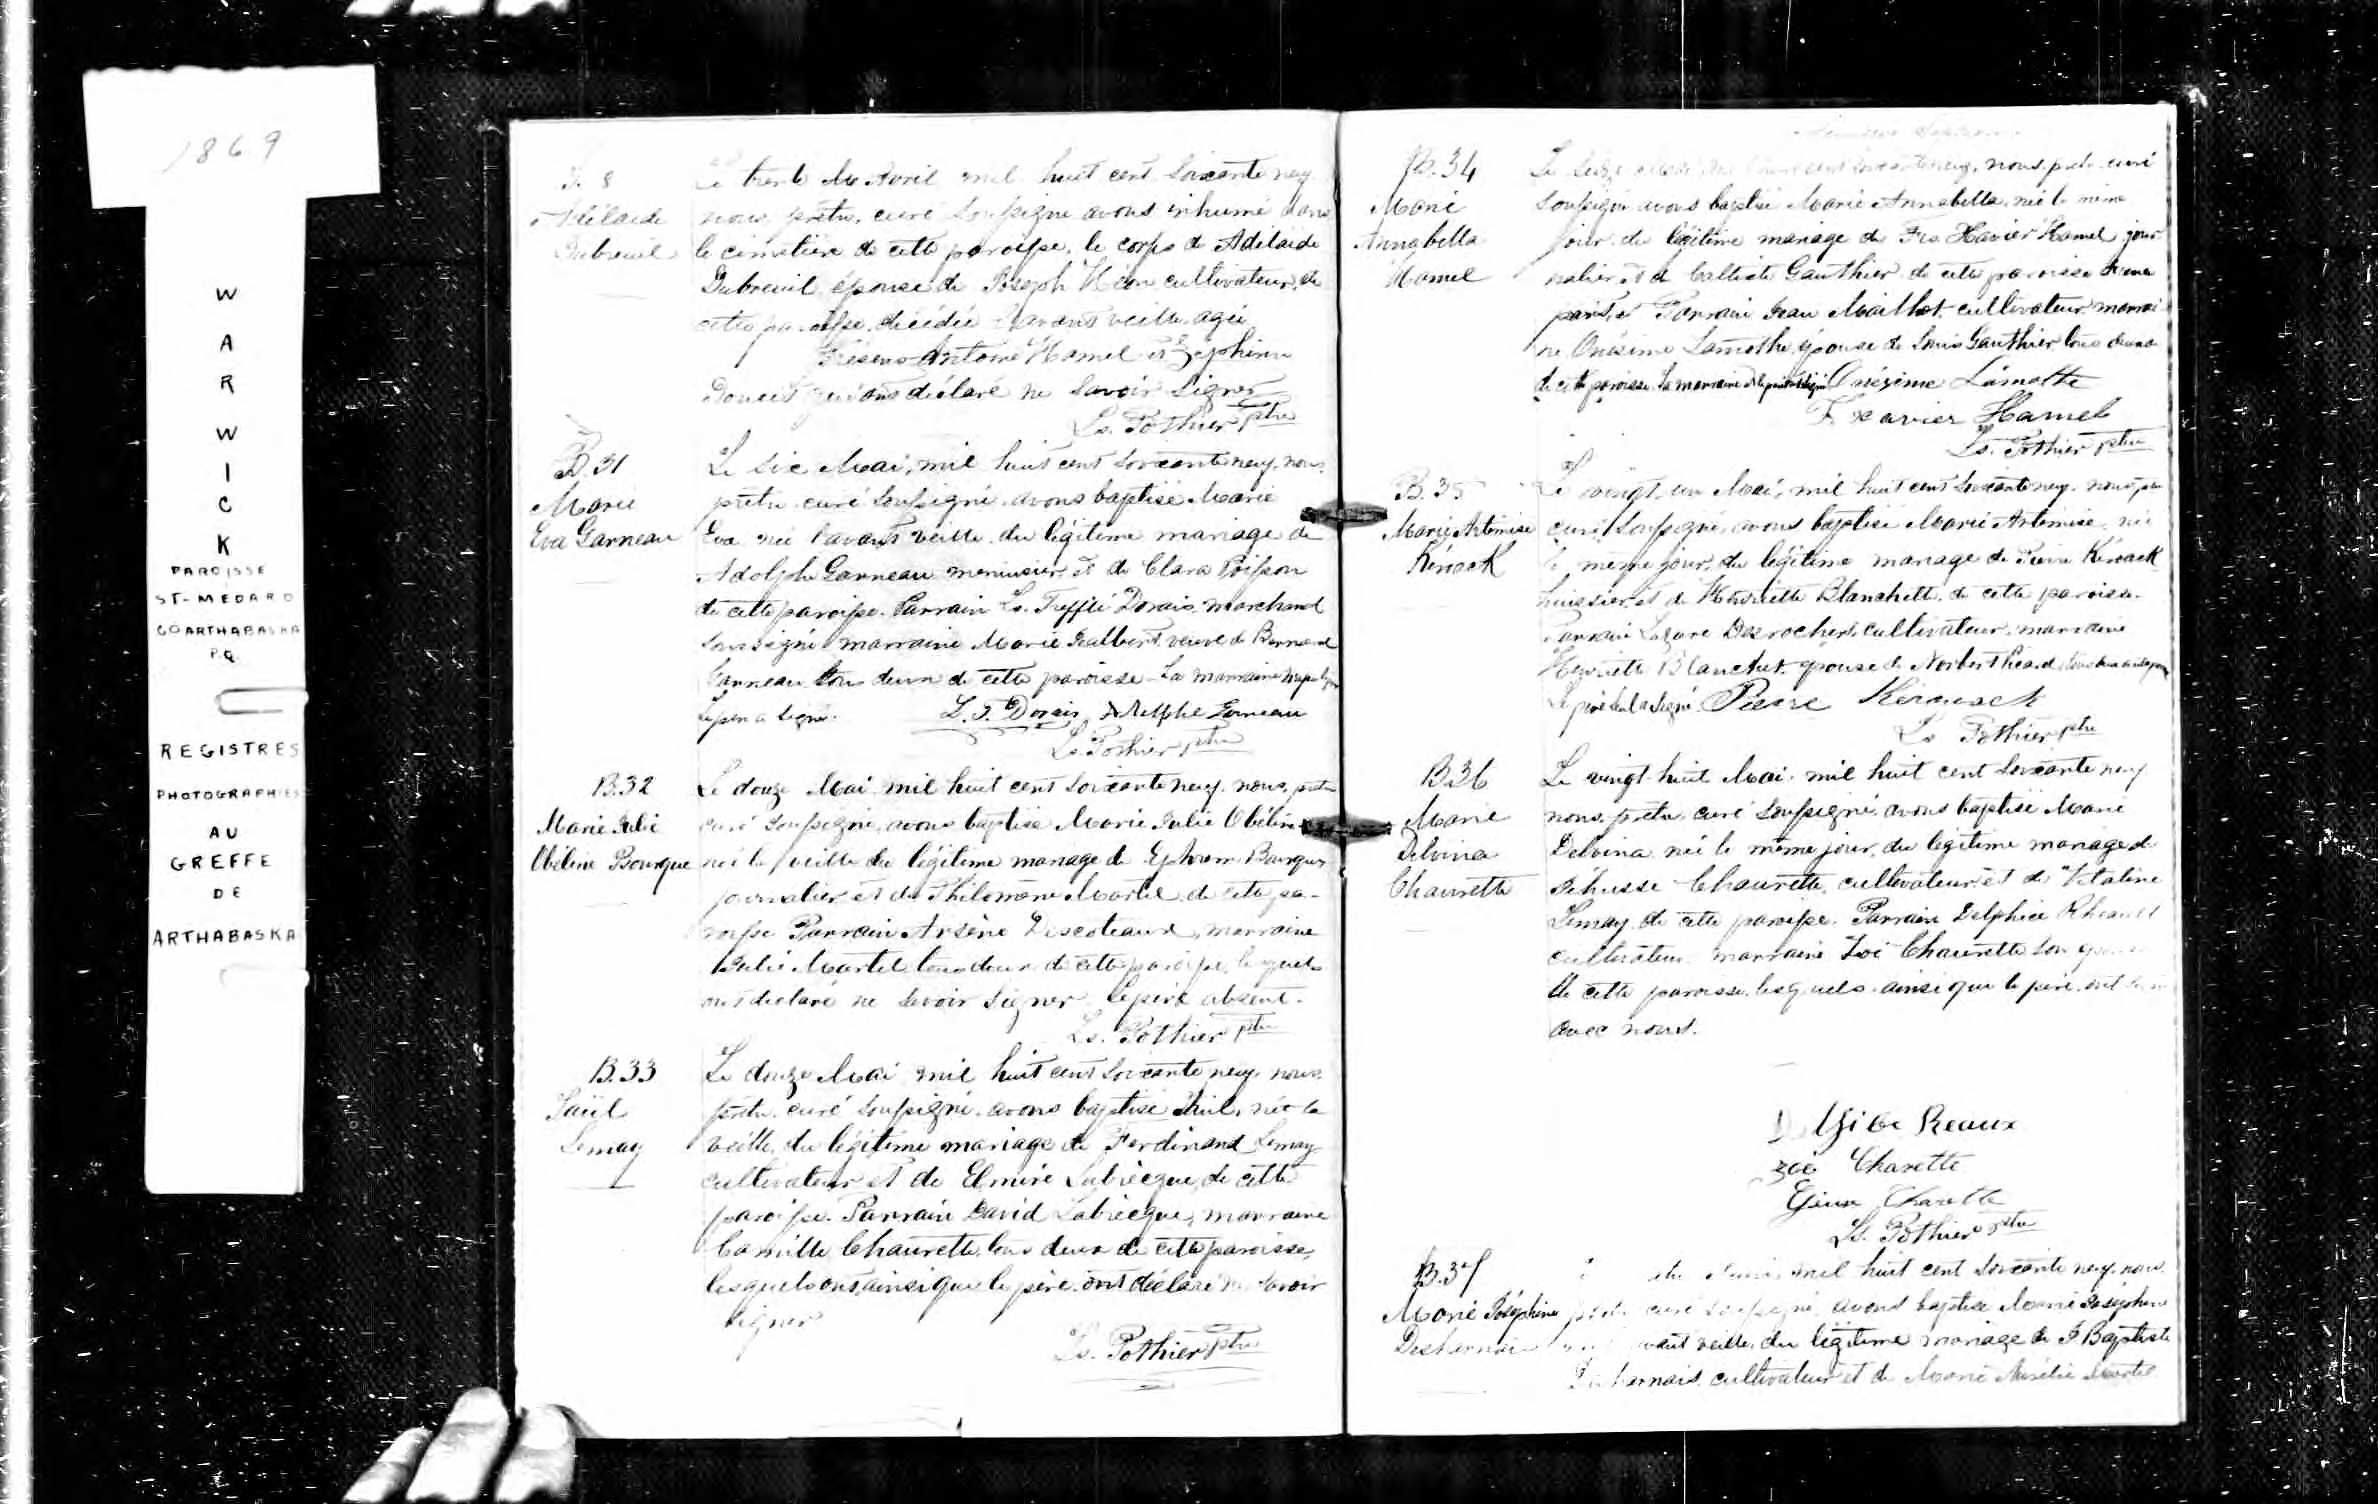 1869
W
A
R
W
I
C
K
PAROISSE
ST-MEDARD
CO ARTHABASKA
P.Q.
REGISTRES
PHOTOGRAPHIES
AU
GREFFE
DE
ARTHABASKA
S. 8
Adélaide
Dubreuil
Le trente Avril mil huit cent soixante neuf
nous prêtre, curé soussigné avons inhumé dans
le cimetière de cette paroisse, le corps de Adélaide
Dubreuil épouse de Joseph Héon cultivateur, de
cette paroisse, décédée l'avant veille agée
Présens Antoine Hamel et Zéphirin
Doucet qui ont déclaré ne savoir signer
Ls. Pothier ptre
B.31
Marie
Eva Garneau
Le six Mai, mil huit cent soixante neuf, nous
prêtre curé soussigné avons baptisé Marie
Eva née l'avant veille du légitime mariage de
Adolphe Garneau menuisier, et de Clara Poisson
de cette paroisse. Parrain Ls. Trefflé Dorais marchand
soussigné marraine Marie Jalbert veuve de Bernard
Garneau tous deux de cette paroisse - La marraine
le père a signé. L. T. Dorais, Adolphe Garneau
Ls. Pothier ptre
B.32
Marie Julie
Obéline Bourque
Le douze Mai mil huit cent soixante neuf, nous, prêtre
curé soussigné, avons baptisé Marie Julie Obéline
née la veille du légitime mariage de Ephrem Bourque
journalier et de Philomène Martel de cette pa-
roisse Parrain Arsène Descoteaux, marraine
Julie Martel tous deux de cette paroisse, lesquels
ont déclaré ne savoir signer, le père absent.
Ls. Pothier ptre
B.33
Saül
Lemay
Le douze Mai mil huit cent soixante neuf, nous
prêtre curé soussigné avons baptisé Saül, né la
veille, du légitime mariage de Ferdinand Lemay
cultivateur et de Elmire Labrecque, de cette
paroisse. Parrain David Labrecque, marraine
Camille Chaurette tous deux de cette paroisse,
lesquels ont ainsi que le père ont déclaré ne savoir
signer
Ls. Pothier ptre
B.34
Marie
Annabella
Hamel
Le seize Mai mil huit cent soixante neuf, nous, prêtre curé
soussigné avons baptisé Marie Annabella, née le même
jour du légitime mariage de Frs. Xavier Hamel, jour-
nalier et de Calliste Gauthier de cette paroisse d'une
part, et Parrain Jean Maillot cultivateur marrai-
ne Onésime Lamothe épouse de Louis Gauthier tous deux
de cette paroisse la marraine et le père ont signé Onézime Lamotte
F. xavier Hamel
Ls. Pothier ptre
B.35
Marie Artémise
Kéroack
Le vingt un Mai, mil huit cent soixante neuf, nous
curé soussigné, avons baptisé Marie Artémise, née
le même jour, du légitime mariage de Pierre Kéroack
huissier, et de Henriette Blanchette, de cette paroisse.
Parrain Lazare Desrochers, cultivateur, marraine
Henriette Blanchet épouse de Norbert
Le père seul a signé Pierre Kérouack
Ls Pothier ptre
B36
Marie
Delvina
Chaurette
Le vingt huit Mai, mil huit cent soixante neuf
nous, prêtre, curé soussigné, avons baptisé Marie
Delvina née le même jour, du légitime mariage de
Chaurette, cultivateur et de Vitaline
Lemay de cette paroisse. Parrain Delphice Rheault
cultivateur marraine Zoé Chaurette son épouse
de cette paroisse, lesquels ainsi que le père ont signé
avec nous.
Reaux
zoé Charette
Charette
Ls. Pothier ptre
B.37
Marie Joséphine
Desharnais
mil huit cent soixante neuf, nous
prêtre curé soussigné, avons baptisé Marie Joséphine
avant veille, du légitime mariage de J. Baptiste
Desharnais, cultivateur et de Marie Aurélie Martel